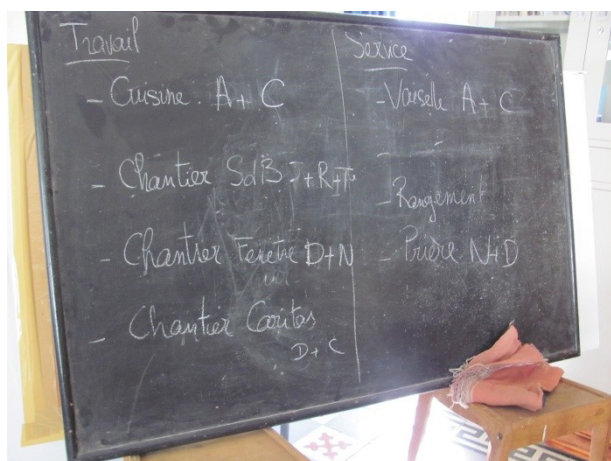 Travail
- Cuisine. A + C
- Chantier SdB J+R+P
- Chantier Fenetre D+N
- Chantier Caritas
D + C
Service
- Vaiselle A + C
- Rangement
- Prière N+D